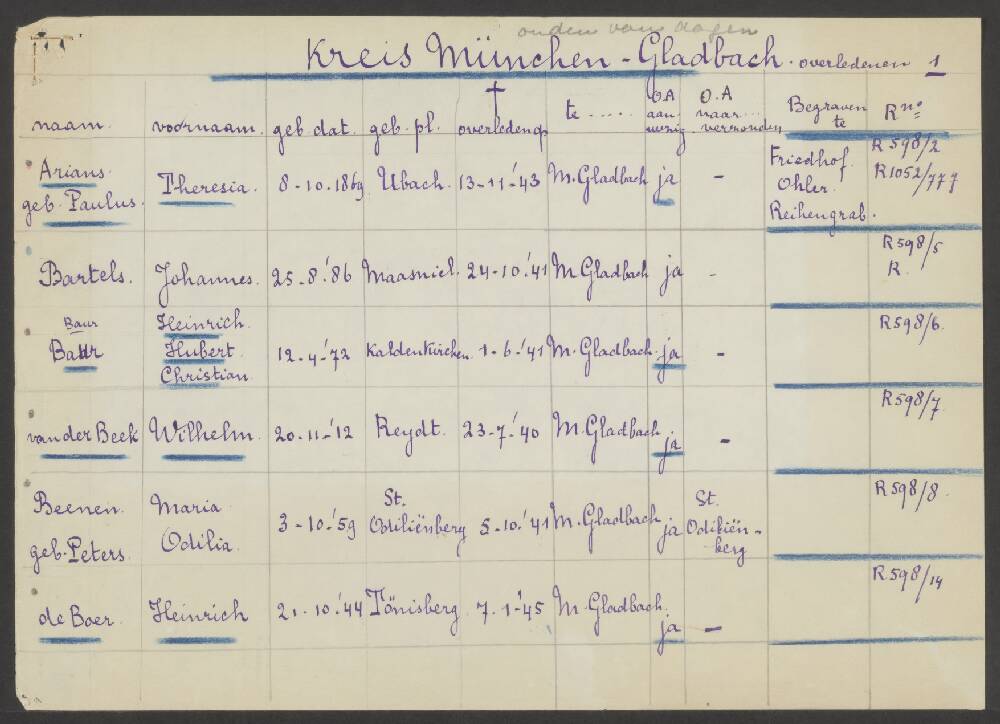 ouden van dagen
Kreis München-Gladbach. overledenen 1
naam. voornaam. geb. dat. geb. pl. † overleden op te ..... O.A aan-wezig. O.A naar... verzonden Begraven te R no:
Arians geb. Paulus. Theresia. 8-10-1869 Ubach. 13-11-'43 M. Gladbach ja - Friedhof Ohler Reihengrab. R 598/2 R1052/777
Bartels. Johannes. 25-8-'86 Maasniel. 24-10-'41 M. Gladbach ja - R598/5 R.
Baur
Baur Heinrich. Hubert. Christian 12-4-'72 Kaldenkirchen 1-6-'41 M. Gladbach. ja - R598/6.
van der Beek Wilhelm. 20-11-'12 Reydt. 23-7-'40 M. Gladbach. ja - R598/7.
Beenen. geb. Peters. Maria Odilia. 3-10-'59 St. Odiliënberg 5-10-'41 M. Gladbach ja St. Odiliën-berg R598/8.
de Boer. Heinrich 21-10-'44 Tönisberg. 7-1-'45 M. Gladbach. ja - R598/14